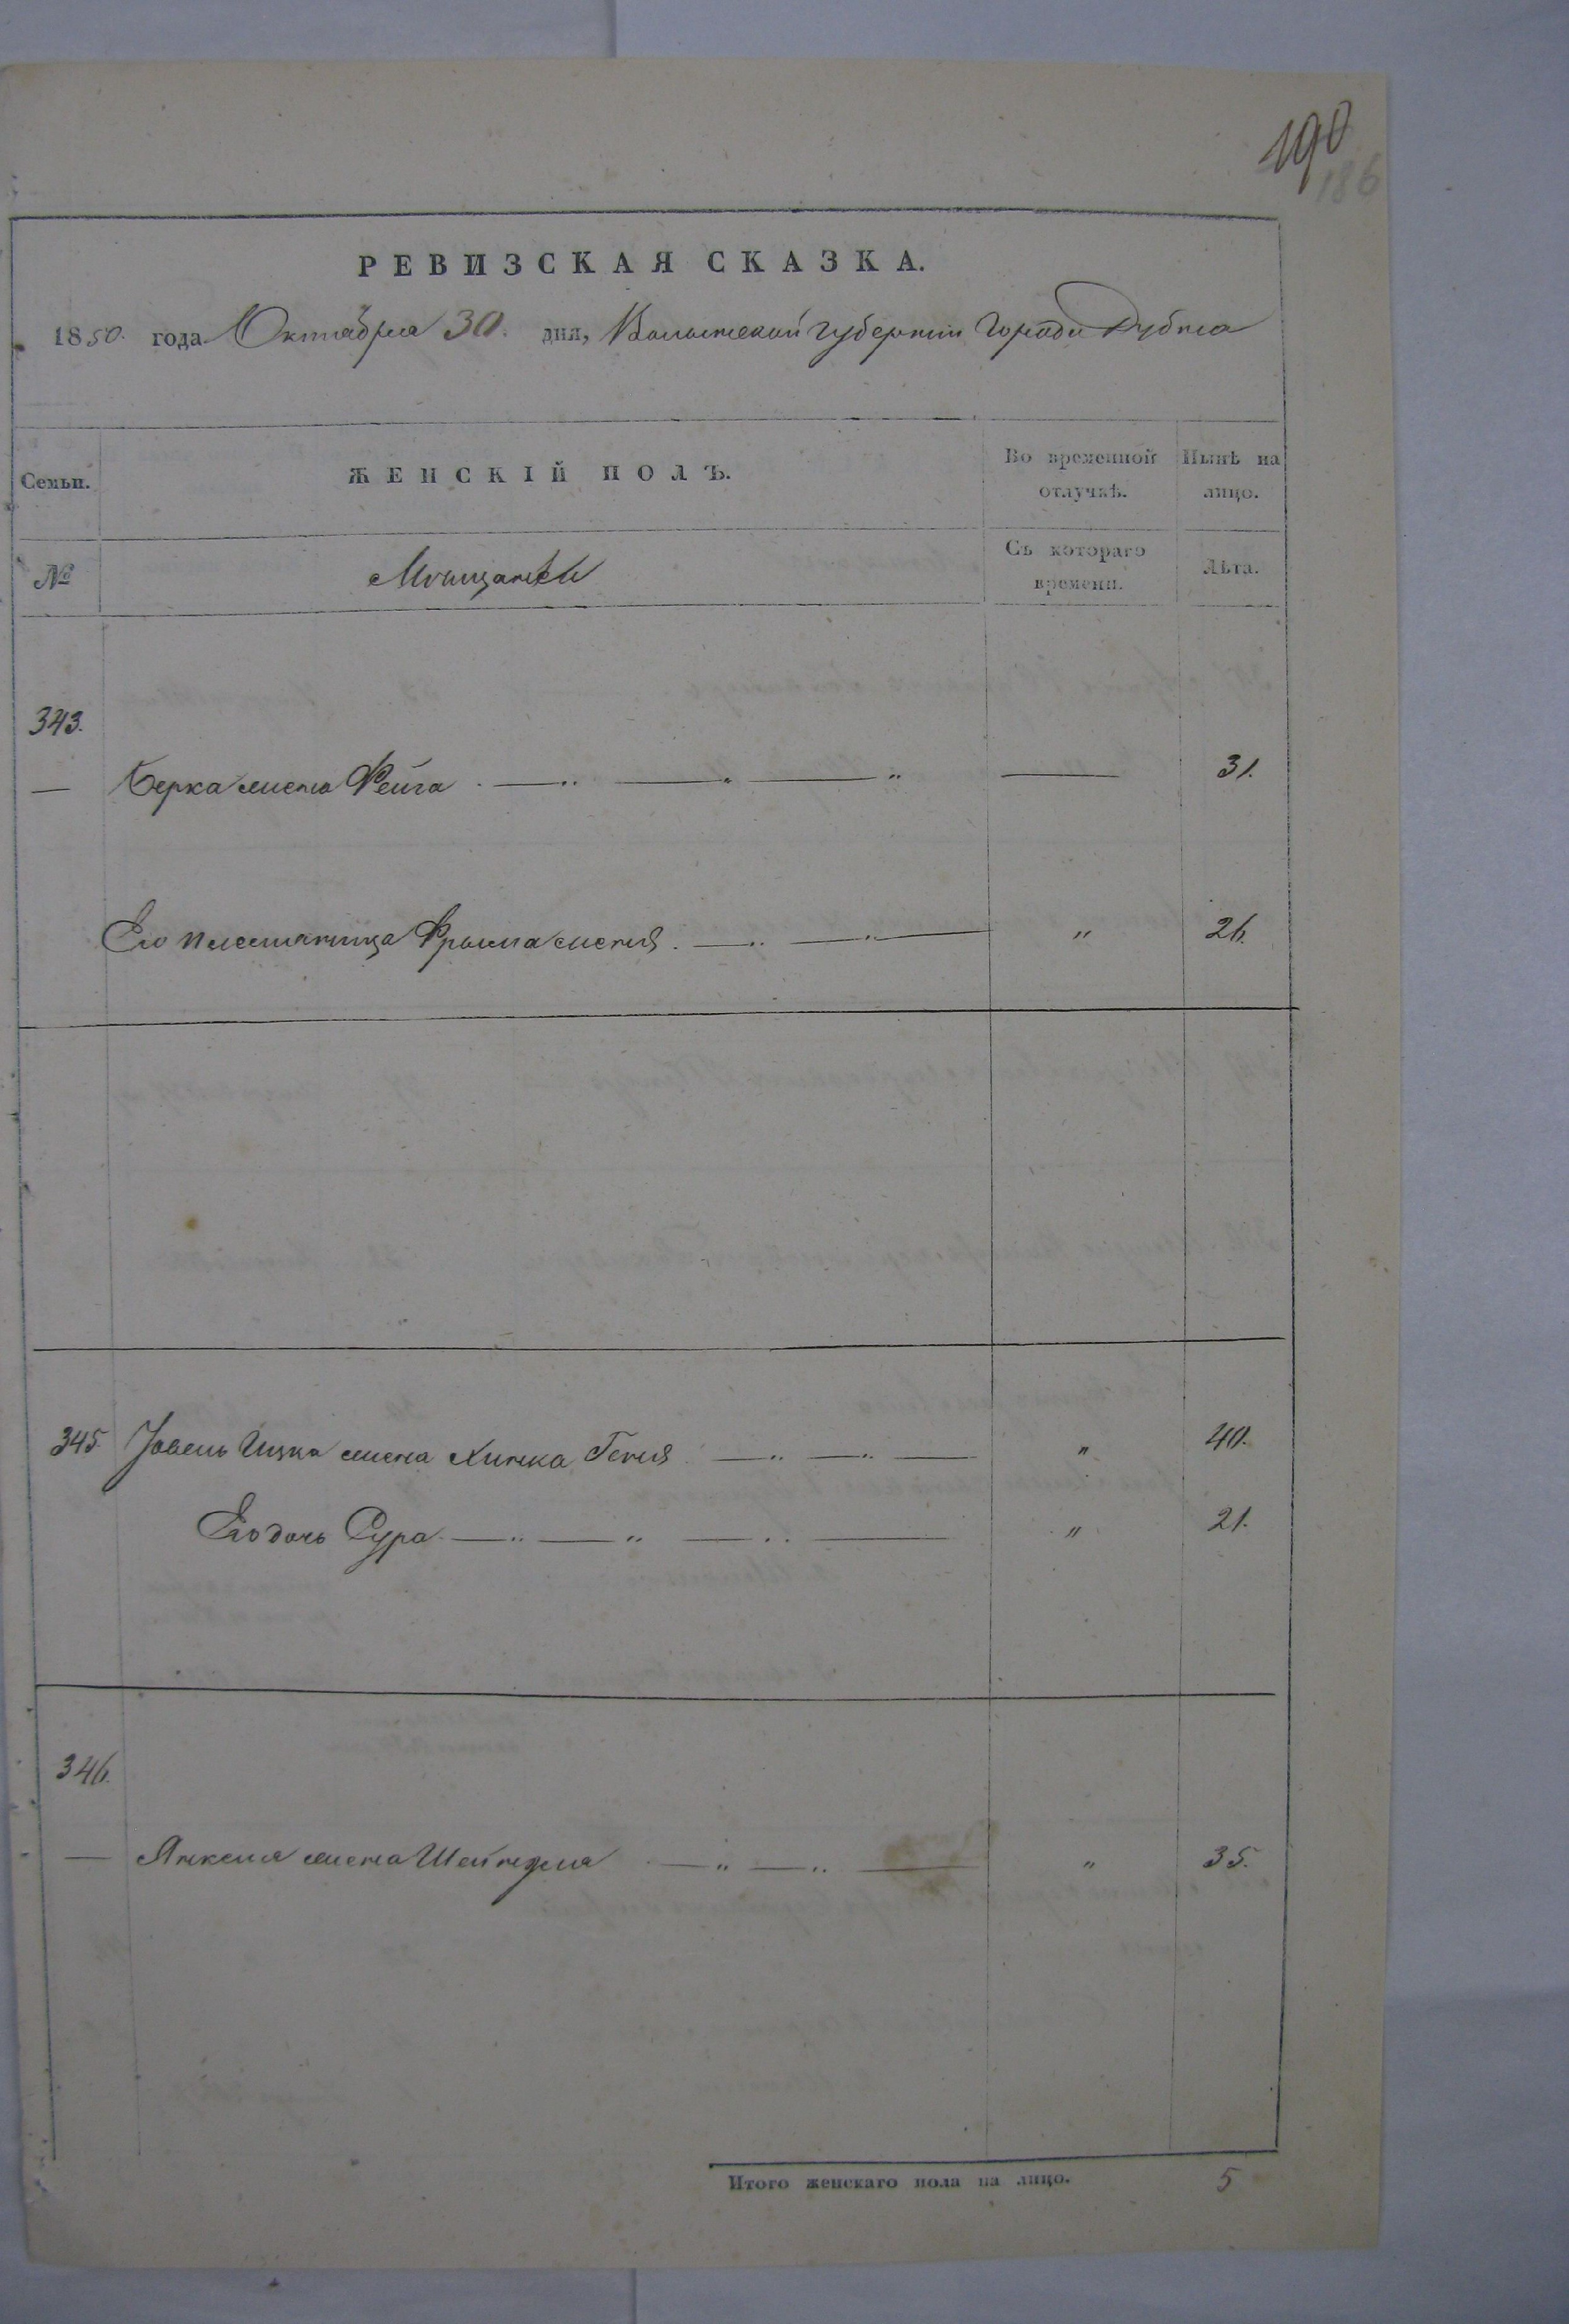 190
186
РЕВИЗСКАЯ СКАЗКА.
1850. года Октября 30. дня, Волынской губернии Города Дубна
Семьи. ЖЕНСКІЙ ПОЛЪ. Во временной отлучкѣ. Нынѣ на лицо.
№ Мѣщанѣ Съ котораго времени. Лѣта.
343.
— Берка жена Фейга — 31.
Его племянница Фрыма " 26.
345. Ицка жена Хинка Геня " 40.
Его дочь Сура " 21.
346.
— Янкеля жена Шейндля " 35.
Итого женскаго пола на лицо. 5